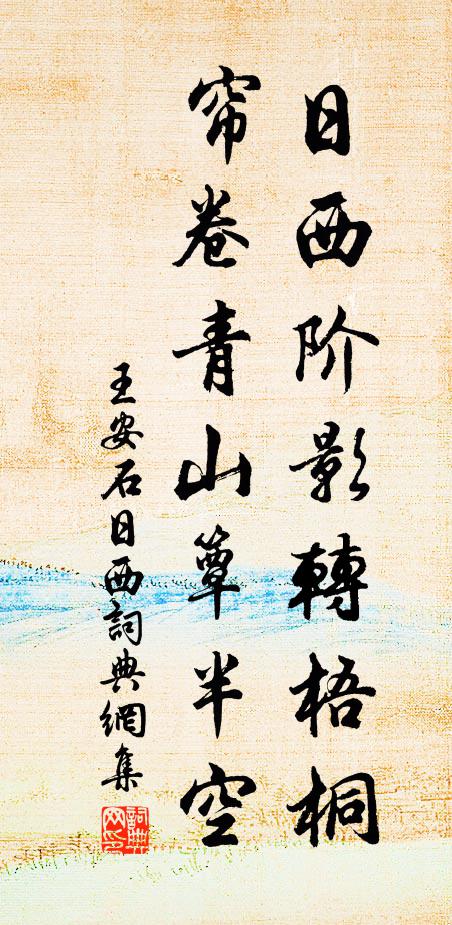 日西阶影轉梧桐
帘卷青山簟半空
王安石日西詞典網集
詞典网印